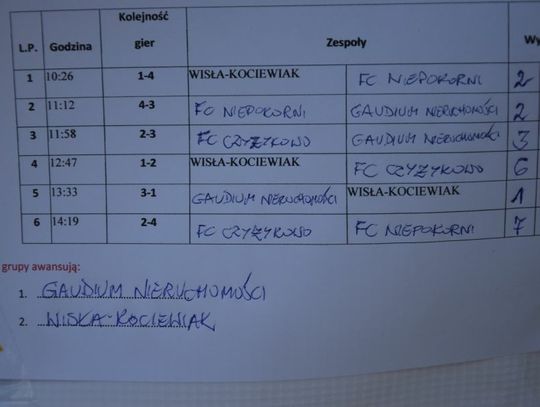 L.P. Godzina Kolejność gier Zespoły Wy
1 10:26 1-4 WISŁA-KOCIEWIAK FC NIEPOKORNI 2
2 11:12 4-3 FC NIEPOKORNI GAUDIUM NIERUCHOMOŚCI 2
3 11:58 2-3 FC CZYŻYKOWO GAUDIUM NIERUCHOMOŚCI 3
4 12:47 1-2 WISŁA-KOCIEWIAK FC CZYŻYKOWO 6
5 13:33 3-1 GAUDIUM NIERUCHOMOŚCI WISŁA-KOCIEWIAK 1
6 14:19 2-4 FC CZYŻYKOWO FC NIEPOKORNI 7
grupy awansują:
1. GAUDIUM NIERUCHOMOŚCI
2. WISŁA-KOCIEWIAK